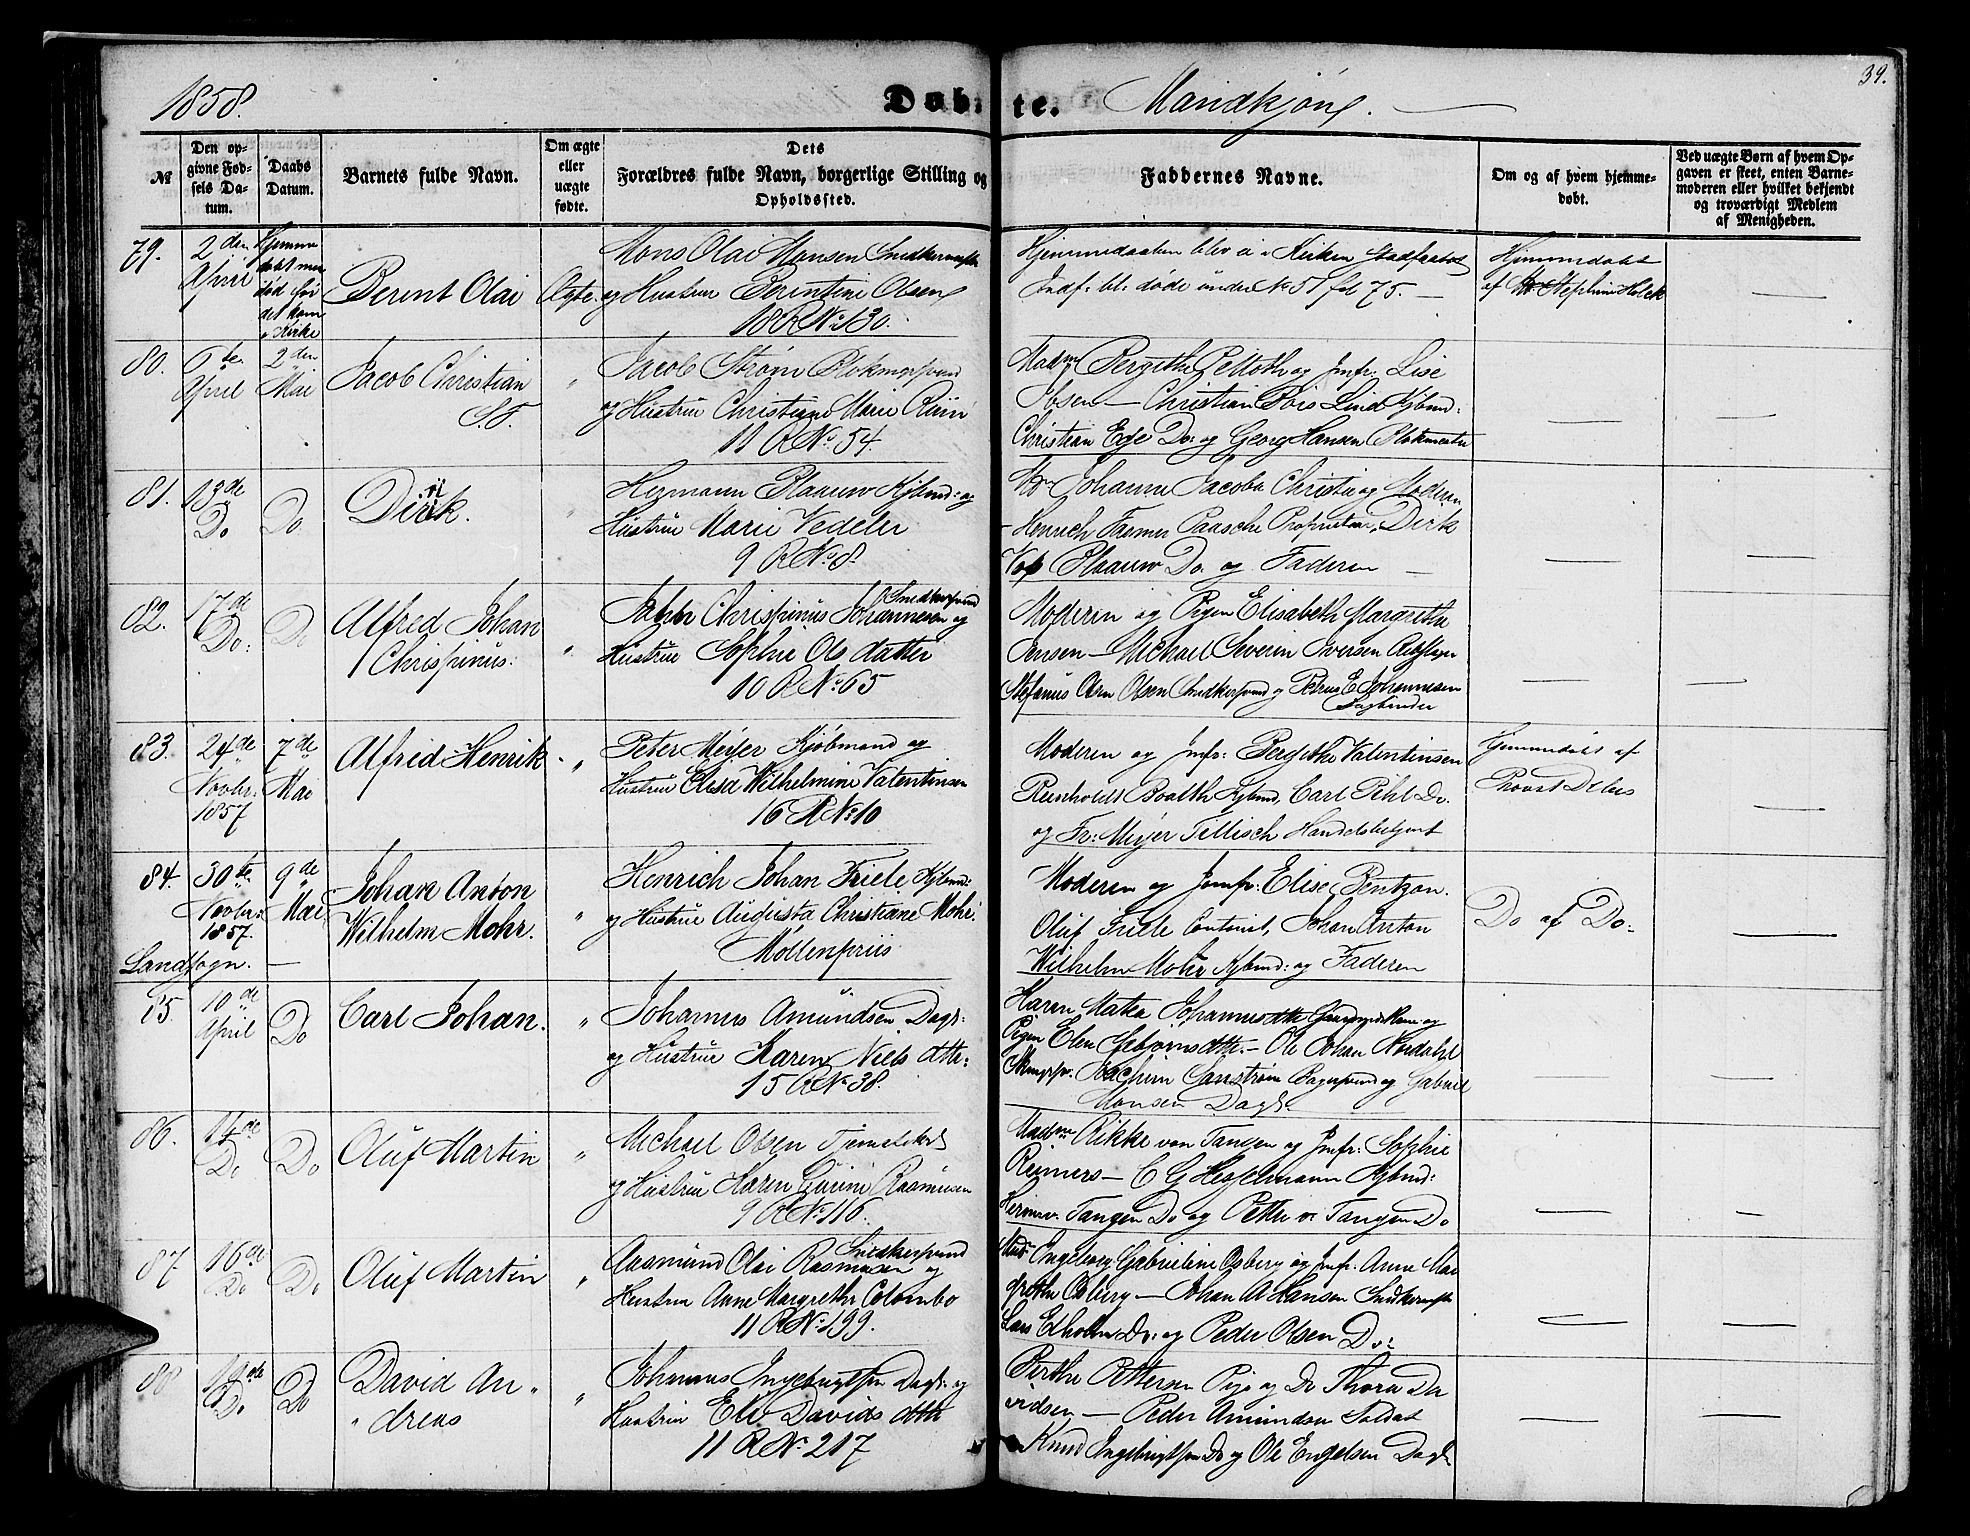 1858.
Døbte. Mandkjøn.
39.
№
Den op-
givne Fød-
sels Da-
tum.
Daabs
Datum.
Barnets fulde Navn.
Om ægte
eller
uægte
fødte.
Dets
Forældres fulde Navn, borgerlige Stilling og
Opholdssted.
Faddernes Navne.
Om og af hvem hjemme-
døbt.
Ved uægte Børn af hvem Op-
gaven er skeet, enten Barne-
moderen eller hvilket bekjendt
og troværdigt Medlem
af Menigheden.
79.
2den
April
Hjemme
døbt men
død før
det kom
i Kirke
Berent Olai
Ægte.
Mons Olai Monsen
og Hustrue Berentine Olsen
18 R No. 130.
Hjemmedaaben blev ei i Kirken Stadfæstet
Indf: bl: døde under No 51 fol 75.
Hjemmedøbt
af Stephine Holck
80.
April
2den
Mai
Jacob Christian
Jacob Strøm
og Hustrue Christiane Marie Riin
11 R No. 54.
Madm Bergithe og Jmfr: Lise
Ibsen — Christian Lind Kjbmd:
Christian Ege Do: og Georg Hansen Blokmester
81.
13de
Do
Do
Dirk.
Hermann Plaauw Kjbmd: og
Hustrue Marie Vedeler
9 R No. 8.
Johanne Jacoba Christie og Moderen
Henrich Fasmer Paasche Dirk
Plaauw Do. og Faderen
82.
17de
Do:
Do
Alfred Johan
Chrispinus:
Snedkersvend
Jahn Chrispinus Johannesen og
Hustrue Sophie Ols datter
10 R No. 65
Moderen og Pigen Elisabeth Margrethe
Jensen — Michael Severin Iversen
Stefanus Olsen Snedkersvend og Petrus E Johannesen
Bogbinder
83.
24de
Novbr:
1857
7de
Mai
Alfred Henrik
Peter Meyer Kjøbmand og
Hustrue Elisa Wilhelmine Valentinsen
16 R No. 10
Moderen og Jmfr: Bergithe Valentinsen
Reinholdt Boalth Kjbmd, Carl Pihl Do.
og Fr: Meyer Tellisch Handelsbetjent
Hjemmedøbt af
Provst
84.
30te
Novbr:
1857.
9de
Mai
Johan Anton
Wilhelm Mohr.
Henrich Johan Friele Kjbmd:
og Hustrue Augusta Christiane Mohr.
Møllenpriis
Moderen og Jomfr: Elise Pentzon.
Oluf Friele Johan Anton
Wilhelm Mohr Kjbmd: og Faderen
Do af Do:
Landsogn. —
85.
10de
April
Do
Carl Johan.
Johannes Amundsen Dagk:
og Hustrue Karen Niels dtr:
15 R No. 38.
Karen Johannes dtr og
Pigen Elen dtr. — Ole Johan Nordahl
og Gabriel
Monsen Dagk
86.
14de
Do
Do
Oluf Martin
Michael Olsen
og Hustrue Karen Gurine Rasmusen
9 R No. 116.
Madm Rikke von Tangen og Jmfr: Sophie
Reimers — C G Kjbmd:
Herm v. Tangen Do og Petter v. Tangen Do
87.
16de
Do
Do
Oluf Martin
Snedkersvend
Aasmund Olai Rasmusen og
Hustrue Anne Margrethe Colombo
11 R No. 199.
Engeborg Gabrieline Osberg og Jmfr. Anne Mar
grethe Osberg — Johan A Hansen Snedkermester
Lars Edholm Do: og Peder Olsen Do:
88
Do
Do
David An
dreas
Johannes Ingebrigtsen Dagk: og
Hustrue Eli Davids dtr
11 R No. 217
Berthe Pettersen Pige og Do Thora Da
vidsen — Peder Amundsen Soldat
Knud Ingebrigtsen Do og Ole Engelsen Dagk